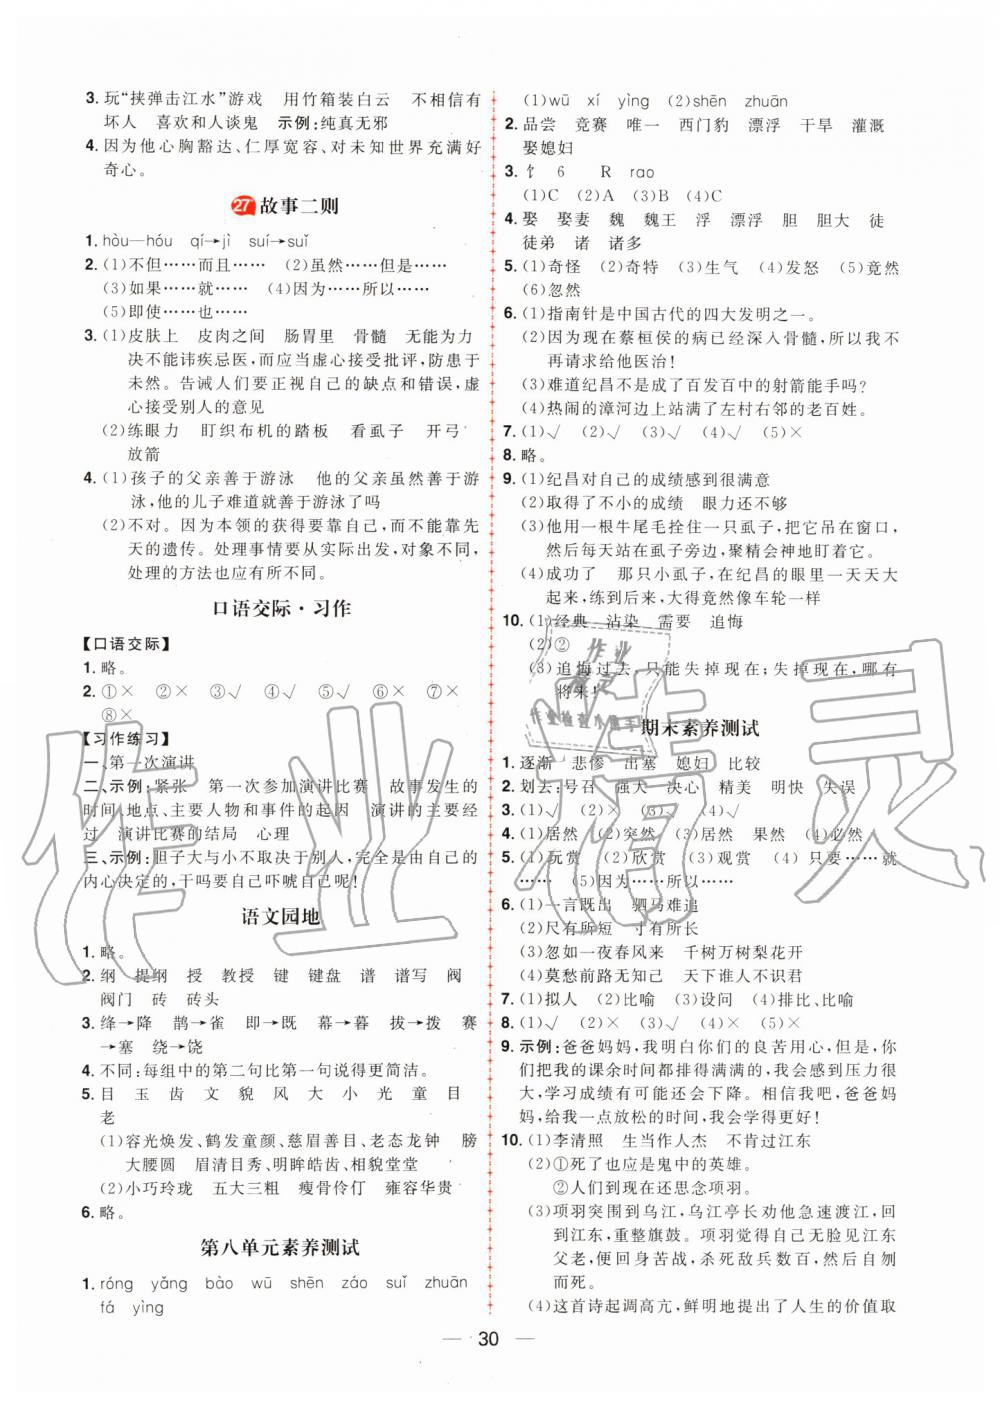 3. 玩“挟弹击江水”游戏　用竹箱装白云　不相信有
坏人　喜欢和人谈鬼　示例:纯真无邪
4. 因为他心胸豁达、仁厚宽容、对未知世界充满好
奇心。
27 故事二则
1. hòu—hóu　qí→jì　suí→suǐ
2. (1)不但……而且……　(2)虽然……但是……
(3)如果……就……　(4)因为……所以……
(5)即使……也……
3. (1)皮肤上　皮肉之间　肠胃里　骨髓　无能为力
决不能讳疾忌医,而应当虚心接受批评,防患于
未然。告诫人们要正视自己的缺点和错误,虚
心接受别人的意见
(2)练眼力　盯织布机的踏板　看虱子　开弓
放箭
4. (1)孩子的父亲善于游泳　他的父亲虽然善于游
泳,他的儿子难道就善于游泳了吗
(2)不对。因为本领的获得要靠自己,而不能靠先
天的遗传。处理事情要从实际出发,对象不同,
处理的方法也应有所不同。
口语交际·习作
【口语交际】
1. 略。
2. ①×　②×　③√　④√　⑤×　⑥×　⑦×
⑧×
【习作练习】
一、第一次演讲
二、示例:紧张　第一次参加演讲比赛　故事发生的
时间、地点、主要人物和事件的起因　演讲的主要经
过　演讲比赛的结局　心理
三、示例:胆子大与小不取决于别人,完全是由自己的
内心决定的,干吗要自己吓唬自己呢!
语文园地
1. 略。
2. 纲　提纲　授　教授　键　键盘　谱　谱写　阀
阀门　砖　砖头
3. 绛→降　鹊→雀　即→既　幕→暮　拔→拨　赛
→塞　绕→饶
4. 不同:每组中的第二句比第一句说得更简洁。
5. 目　玉　齿　文　貌　风　大　小　光　童　目
老
(1)容光焕发、鹤发童颜、慈眉善目、老态龙钟　膀
大腰圆　眉清目秀、明眸皓齿、相貌堂堂
(2)小巧玲珑　五大三粗　瘦骨伶仃　雍容华贵
6. 略。
第八单元素养测试
1. róng　yǎng　bào　wū　shēn　záo　suǐ　zhuān
fá　yìng
(1)wū　xí　yìng　(2)shēn　zhuān
2. 品尝　竞赛　唯一　西门豹　漂浮　干旱　灌溉
娶媳妇
3. 饣　6　R　rao
(1)C　(2)A　(3)B　(4)C
4. 娶　娶妻　魏　魏王　浮　漂浮　胆　胆大　徒
徒弟　诸　诸多
5. (1)奇怪　(2)奇特　(3)生气　(4)发怒　(5)竟然
(6)忽然
6. (1)指南针是中国古代的四大发明之一。
(2)因为现在蔡桓侯的病已经深入骨髓,所以我不
再请求给他医治!
(3)难道纪昌不是成了百发百中的射箭能手吗?
(4)热闹的漳河边上站满了左村右邻的老百姓。
7. (1)√　(2)√　(3)×　(4)√　(5)×
8. 略。
9. (1)纪昌对自己的成绩感到很满意
(2)取得了不小的成绩　眼力还不够
(3)他用一根牛尾毛拴住一只虱子,把它吊在窗口,
然后每天站在虱子旁边,聚精会神地盯着它。
(4)成功了　那只小虱子,在纪昌的眼里一天天大
起来,练到后来,大得竟然像车轮一样
10. (1)经典　沾染　需要　追悔
(2)②
(3)追悔过去,只能失掉现在;失掉现在,哪有
将来!
期末素养测试
1. 逐渐　悲惨　出塞　媳妇　比较
2. 划去:号召　强大　决心　精美　明快　失误
3. (1)√　(2)×　(3)√　(4)√
4. (1)居然　(2)突然　(3)居然　果然　(4)必然
5. (1)玩赏　(2)欣赏　(3)观赏　(4)只要……就
……　(5)因为……所以……
6. (1)一言既出　驷马难追
(2)尺有所短　寸有所长
(3)忽如一夜春风来　千树万树梨花开
(4)莫愁前路无知己　天下谁人不识君
7. (1)拟人　(2)比喻　(3)设问　(4)排比、比喻
8. (1)√　(2)×　(3)√　(4)×　(5)×
9. 示例:爸爸妈妈,我明白你们的良苦用心,但是,你
们把我的课余时间都排得满满的,我会感到压力很
大,学习成绩有可能还会下降。相信我吧,爸爸妈
妈,给我一点放松的时间,我会学得更好!
10. (1)李清照　生当作人杰　不肯过江东
(2)①死了也应当是鬼中的英雄。
②人们到现在还思念项羽。
(3)项羽突围到乌江,乌江亭长劝他急速渡江,回
到江东,重整旗鼓。项羽觉得自己无脸见江东
父老,便回身苦战,杀死敌兵数百,然后自刎
而死。
(4)这首诗起调高亢,鲜明地提出了人生的价值取
30
作业精灵
作业
精灵
作业检查小能手